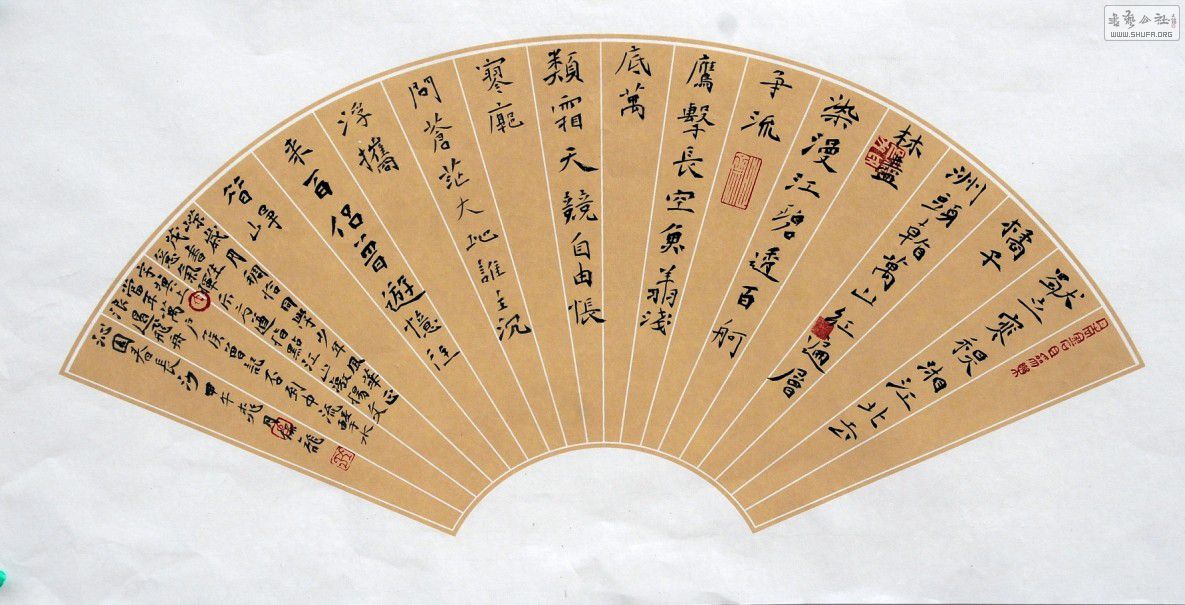 獨立寒秋湘江北去
橘子
洲頭看萬山紅遍層
林盡
染漫江碧透百舸
争流
鷹擊長空魚翔淺
底萬
類霜天競自由悵
寥廓
問蒼茫大地誰主沉
浮攜
来百侣曾遊憶往
昔崢
嶸歲月稠恰同學少年風華正
茂書生意氣揮斥方遒指點江山激揚文
字糞土當年萬户侯曾記否到中流擊水
浪遏飛舟
沁園春長沙甲午
WWW.SHUFA.ORG